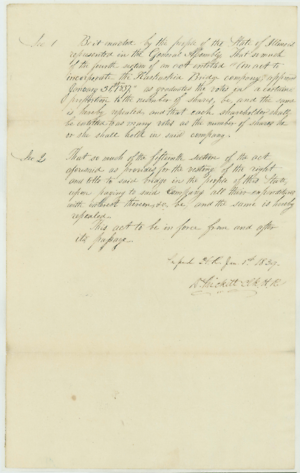 Sec 1 Be it enacted by the people of the State of Illinois
represented in the General Assembly That so much
of the fourth section of an act entitled "An act to
incorporate the Kaskaskia Bridge company" approved
January 1837" as graduates the votes in a certain
proportion to the number of shares, be, and the same
is hereby repealed and that each shareholder shall
be entitled to as many votes as the number of shares he
or she shall hold in said company.
Sec 2 That so much of the fifteenth section of the act
aforesaid as provides for the vesting of the right
and title to said bridge in the people of this State,
upon paying to said Company all their expenditures
with interest thereon, &c be, and the same is hereby
repealed.
This act to be in force from and after
its passage
H.R. 1839.